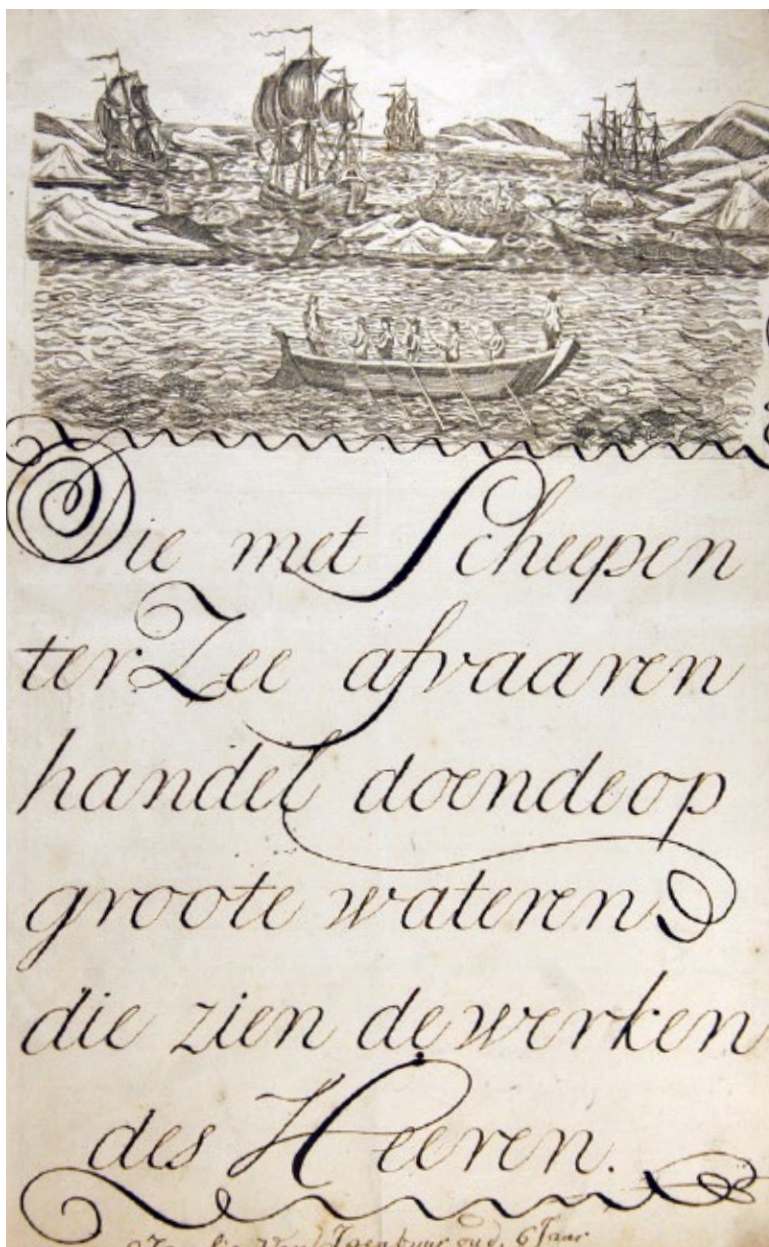 Die met Scheepen
ter Zee afvaaren
handel doende op
groote wateren
die zien de werken
des Heeren.
oud, 6 Jaar